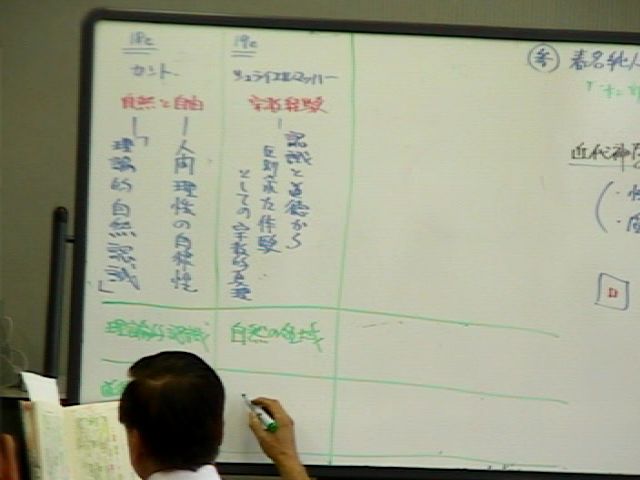 18c
カント
自然と自由
「理論的自然認識」
人間理性の自律性
19c
シュライエルマッハー
宗教経験
認識と道徳から
区別された体験
としての宗教的真理
理論的認識
自然の領域
参 春名純人
近代神学